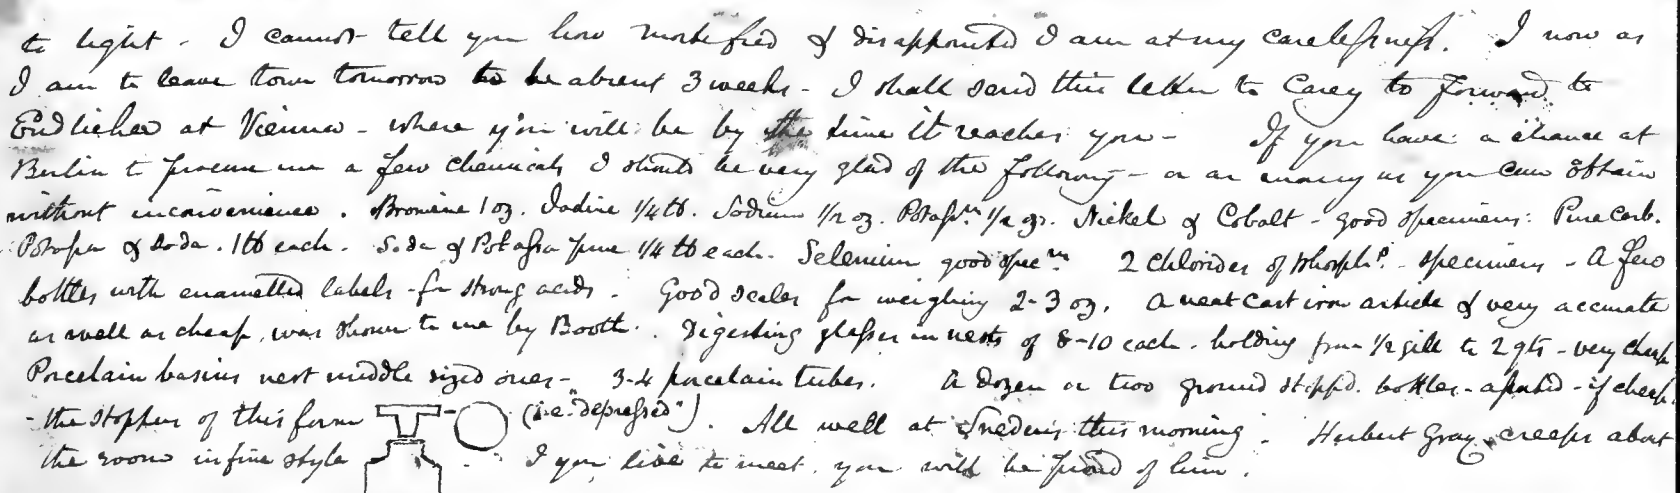 to light - I cannot tell you how mortified & disappointed I am at my carelessness. I now as
I am to leave town tomorrow to be absent 3 weeks - I shall send this letter to Carey to forward to
Endlicher at Vienna - where you will be by the time it reaches you - If you have a chance at
Berlin to procure me a few chemicals I should be very glad of the following - or as many as you can obtain
without inconvenience. Bromine 1 oz. Iodine 1/4 lb. Sodium 1/2 oz. Potassm. 1/2 oz. Nickel & Cobalt - good specimens: Pure Carb.
Potassa & Soda. 1 lb each. Soda & Potassa pure 1/4 lb each. Selenium good specm. 2 Chlorides of Phosphs. - specimens - A few
bottles with enamelled labels - for strong acids. Good scales for weighing 2-3 oz. A neat cast iron article & very accurate
as well as cheap, was shown to me by Booth. Digesting glasses in nests of 8-10 each - holding from 1/2 gill to 2 qts - very cheap
Porcelain basins nest middle sized ones - 3-4 porcelain tubes. A dozen or two ground stoppd. bottles - - if cheap.
- the stoppers of this form (i.e. "depressed"). All well at this morning. Herbert Gray creeps about
the room in fine style I you live to meet, you will be proud of him.